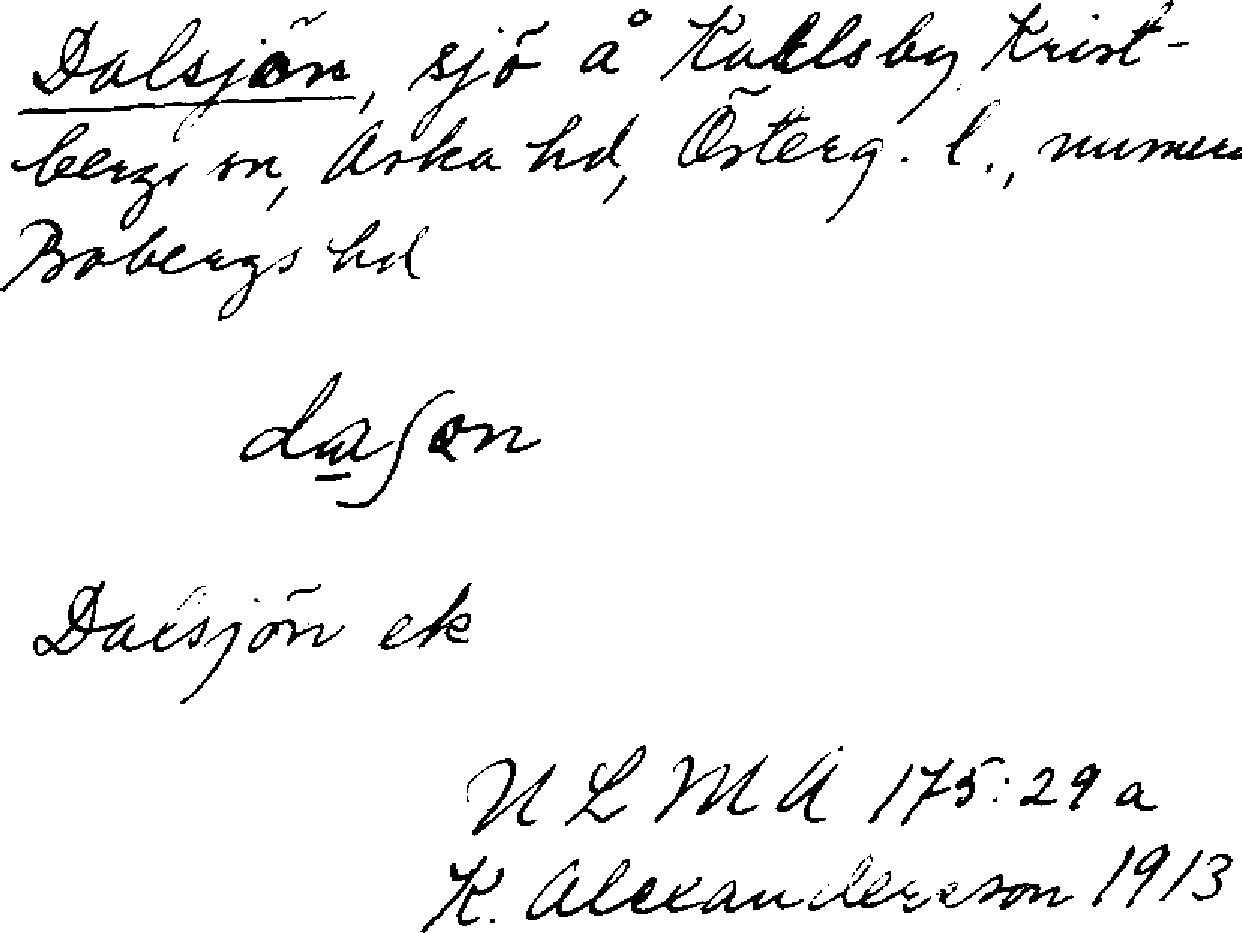 Dalsjön, sjö å Karlsby Krist-
bergs sn, Aska hd, Österg. l., numera
Bobergs hd
daʃən
Dalsjön ek
ULMA 175:29a
K. Alexandersson 1913